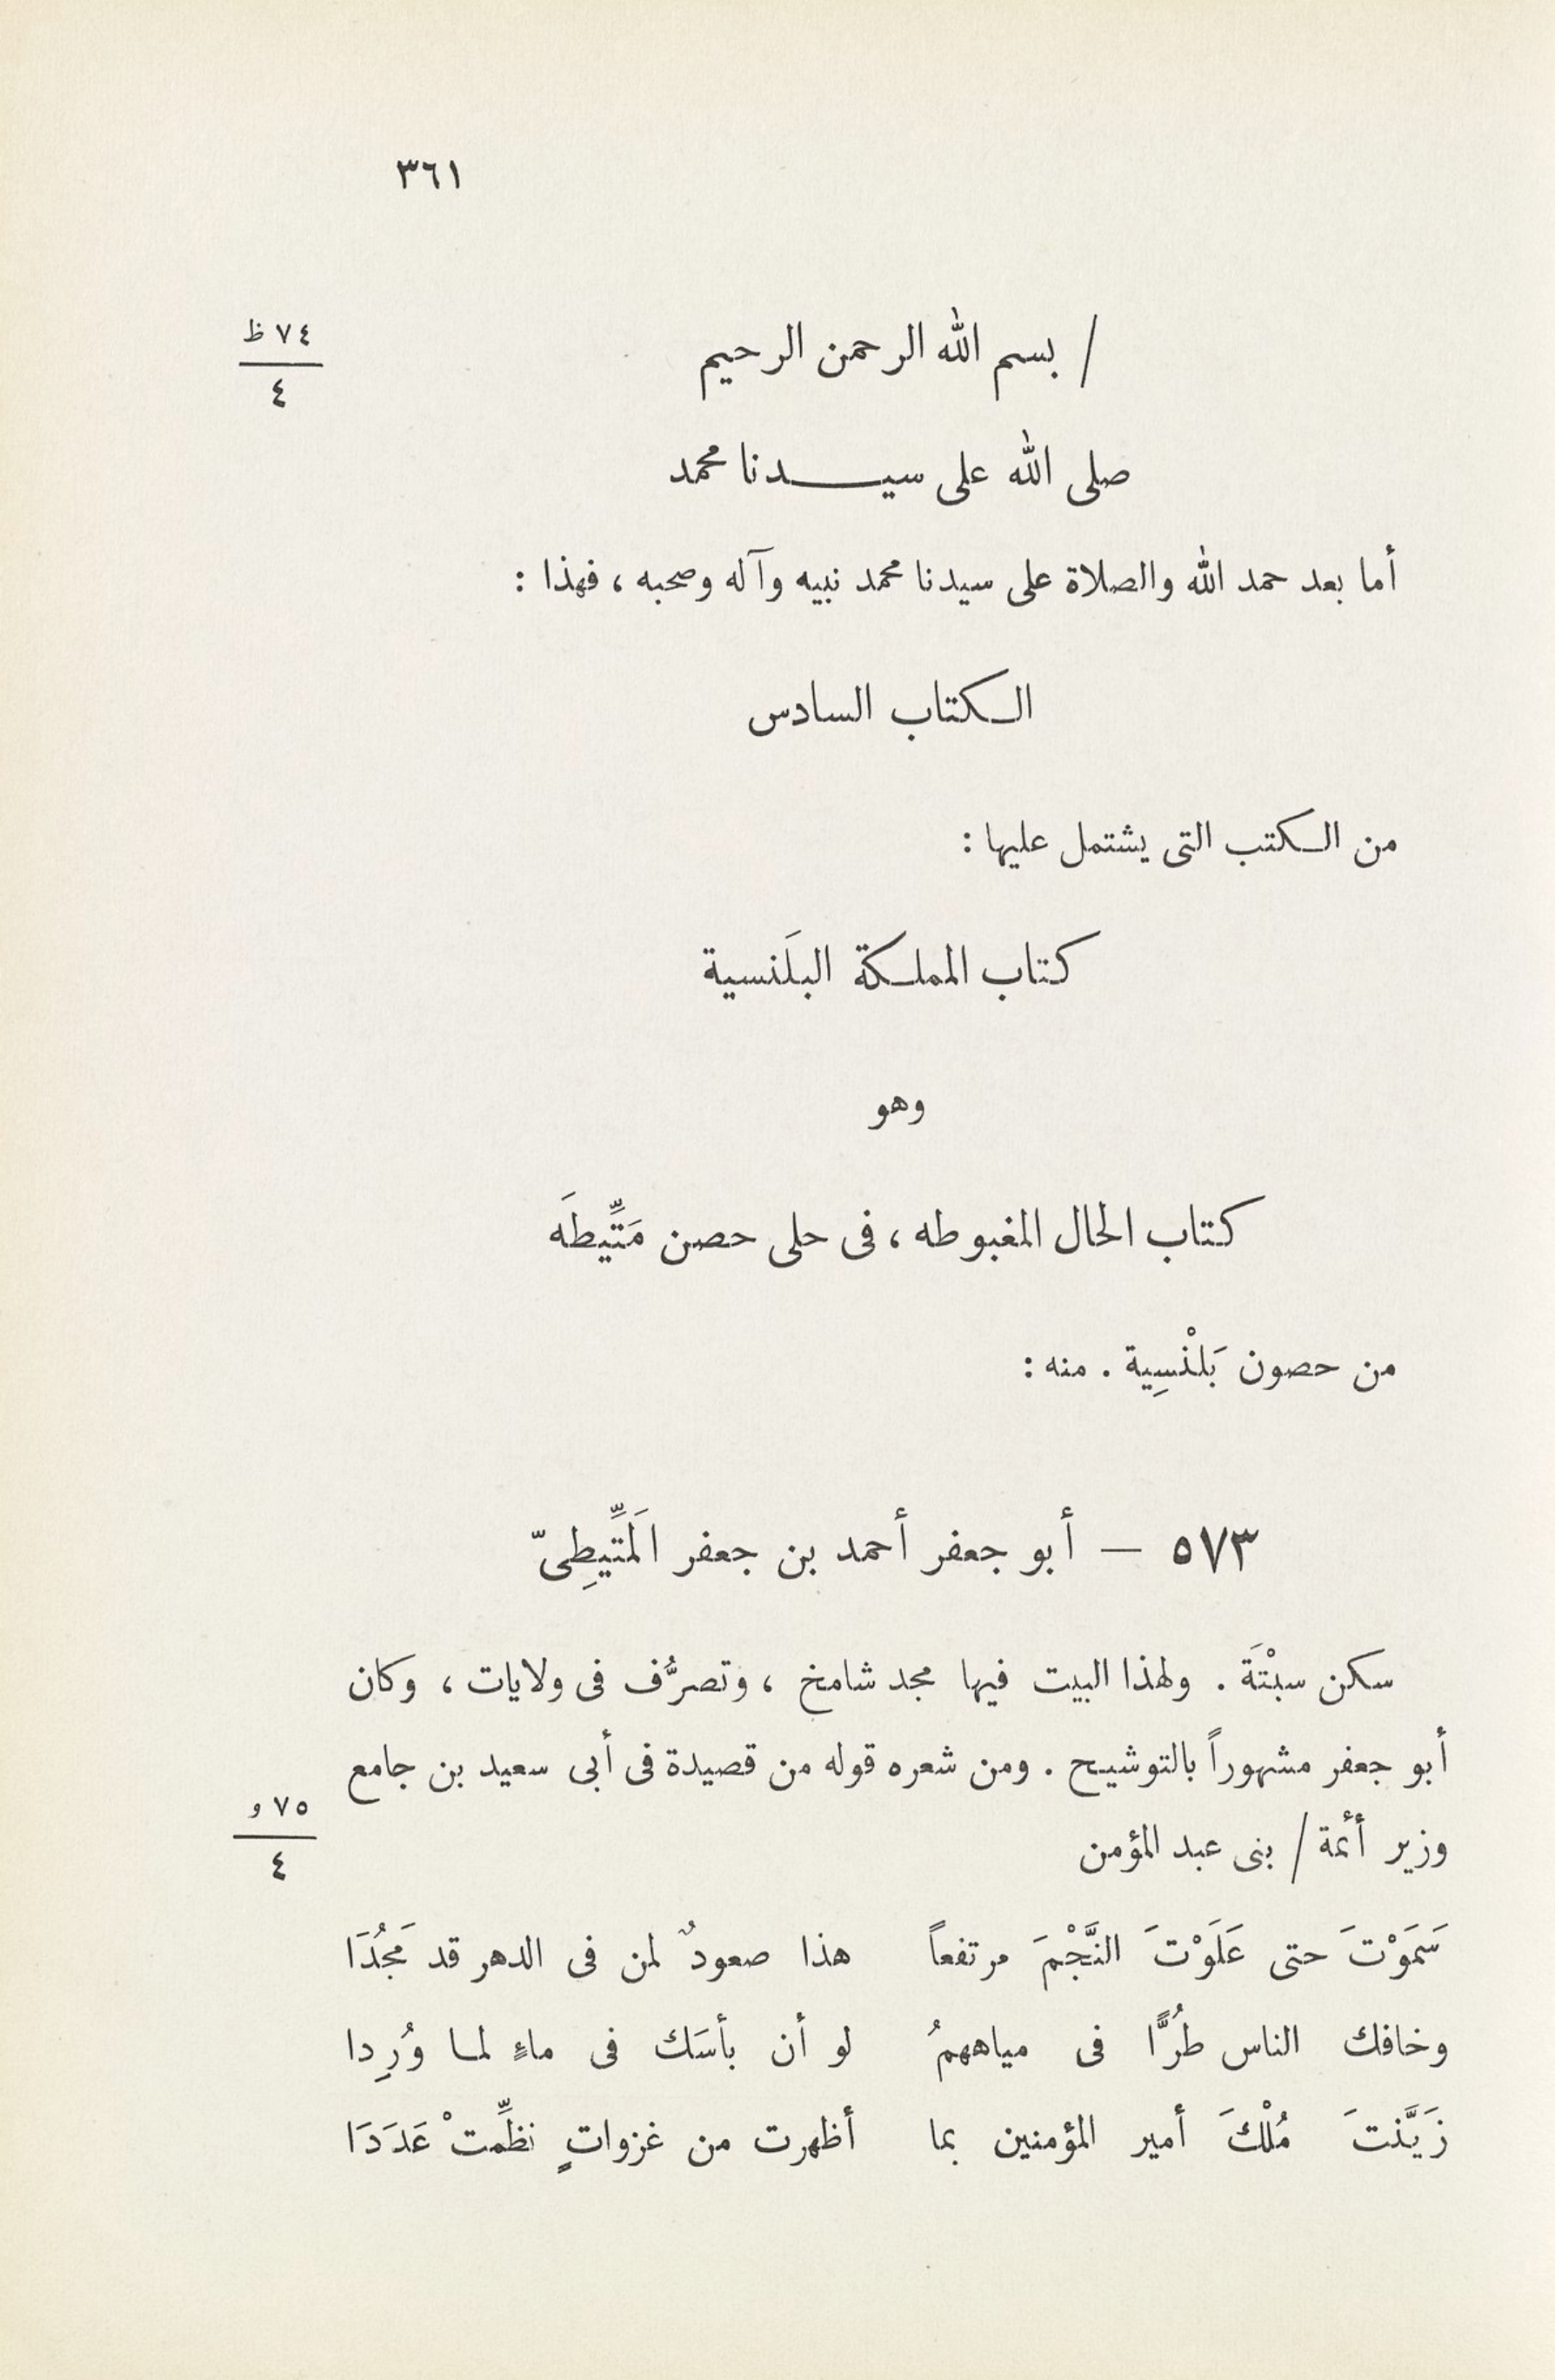 ٣٦١
/ بسم الله الرحمن الرحيم
٧٤ ظ
٤
صلى الله على سيـــدنا محمد
أما بعد حمد الله والصلاة على سيدنا محمد نبيه وآله وصحبه ، فهذا :
الكتاب السادس
من الكتب التى يشتمل عليها :
كتاب المملكة البلَنسية
وهو
كتاب الحال المغبوطه ، فى حلى حصن مَتِّيطَه
من حصون بَلنْسِية . منه :
٥٧٣ — أبو جعفر أحمد بن جعفر المَتِّيطِىّ
سكن سبْتَة . ولهذا البيت فيها مجد شامخ ، وتصرُّف فى ولايات ، وكان
أبو جعفر مشهوراً بالتوشيح . ومن شعره قوله من قصيدة فى أبى سعيد بن جامع
وزير أئمة / بنى عبد المؤمن
٧٥ و
٤
سَمَوْتَ حتى عَلَوْتَ النَّجْمَ مرتفعاً هذا صعودٌ لمن فى الدهر قد مَجُدَا
وخافك الناس طُرًّا فى مياههمُ لو أن بأسَك فى ماءٍ لما وُرِدا
زَيَّنتَ مُلْكَ أمير المؤمنين بما أظهرت من غزواتٍ نظِّمتْ عَدَدَا